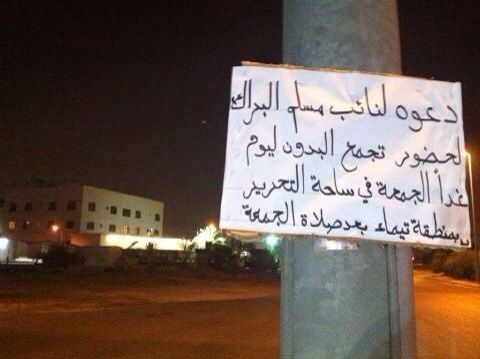 دعوه لنائب مسلم البراك
لحضور تجمع البدون ليوم
غداً الجمعة في ساحة التحرير
بمنطقة تيماء بعد صلاة الجمعة